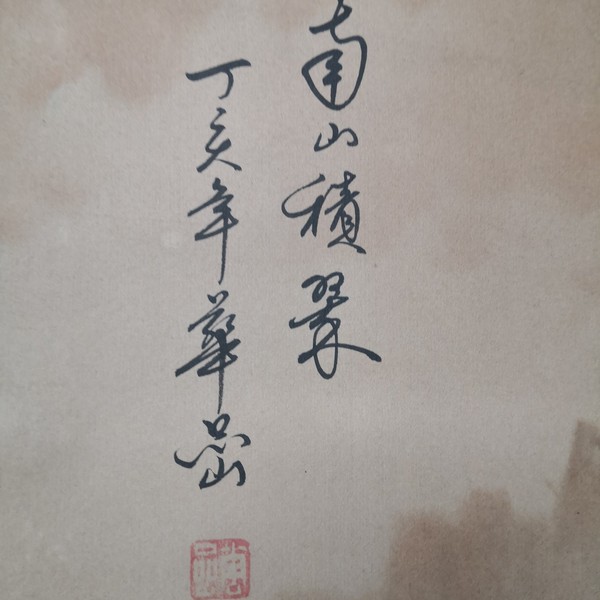 南山積翠
丁亥年華嵒